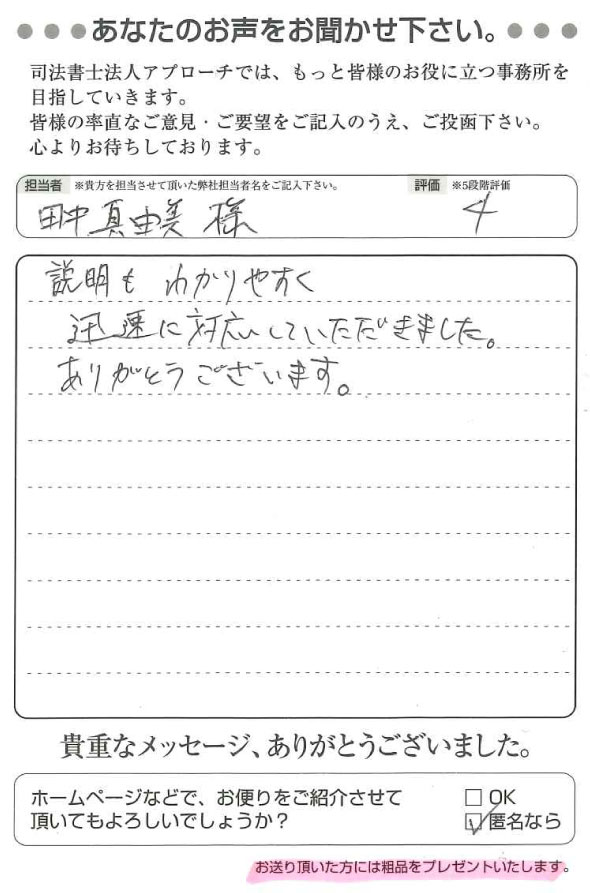 ●●●あなたのお声をお聞かせ下さい。●●●
司法書士法人アプローチでは、もっと皆様のお役に立つ事務所を
目指していきます。
皆様の率直なご意見・ご要望をご記入のうえ、ご投函下さい。
心よりお待ちしております。
担当者 ※貴方を担当させて頂いた弊社担当者名をご記入下さい。 評価 ※5段階評価
田中真由美 様 4
説明も わかりやすく
迅速に対応していただきました。
ありがとうございます。
貴重なメッセージ、ありがとうございました。
ホームページなどで、お便りをご紹介させて □ OK
頂いてもよろしいでしょうか? ☑ 匿名なら
お送り頂いた方には粗品をプレゼントいたします。